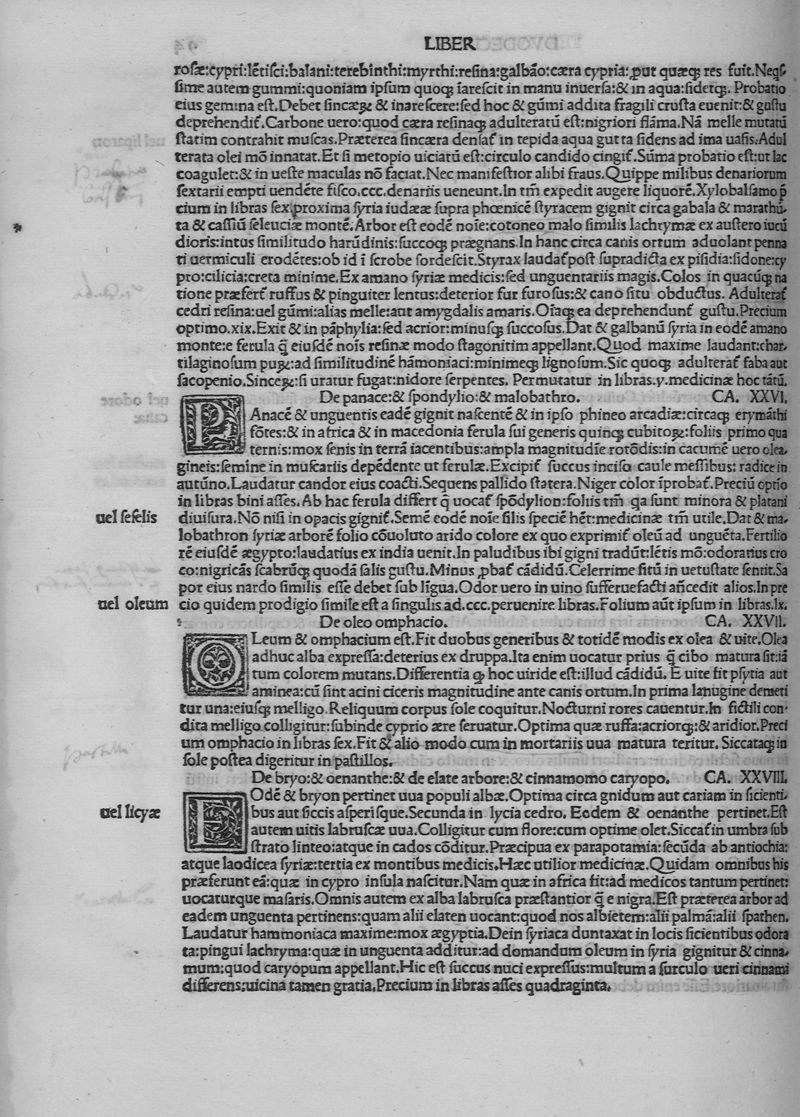 LIBER
rosæ:cypri:lētisci:balani:terebinthi:myrthi:resina:galbāo:cæra cypria:,put quæqꝫ res fuit.Neqs͛
sime autem gummi:quoniam ipsum quoqꝫ īarescit in manu inuersa:& in aqua:sidetqꝫ. Probatio
eius gemina est.Debet sincæꝝ & inarescere:sed hoc & gūmi addita fragili crusta euenit:& gustu
deprehendit᷒.Carbone uero:quod cæra resinaqꝫ adulteratū est:nigriori flāma.Nā melle mutatū
statim contrahit muscas.Præterea sincæra densat᷒ in tepida aqua gutta sidens ad ima uasis.Adul
terata olei mō innatat.Et si metopio uiciatū est:circulo candido cingit᷒.Sūma probatio est:ut lac
coagulet:& in ueste maculas nō faciat.Nec manifestior alibi fraus.Quippe milibus denariorum
sextarii empti uendēte fisco.ccc.denariis ueneunt.In tm̄ expedit augere liquorē.Xylobalsamo p̄
cium in libras sex,proxima syria iudææ supra phœnicē styracem gignit circa gabala & marathū.
ta & cassiū seleuciæ montē.Arbor est eodē noīe:cotoneo malo similis lachrymæ ex austero iucū
dioris:intus similitudo harūdinis:succoqꝫ prægnans.In hanc circa canis ortum aduolant penna
ti uermiculi erodētes:ob id ī scrobe sordescit.Styrax laudat᷒ post supradicta ex pisidia:sidone:cy
pro:cilicia:creta minime.Ex amano syriæ medicis:sed unguentariis magis.Colos in quacūqꝫ na
tione præfert᷒ ruffus & pinguiter lentus:deterior fur furosus:& cano situ obductus. Adulterat᷒
cedri resina:uel gūmi:alias melle:aut amygdalis amaris.Oīaqꝫ ea deprehendunt᷒ gustu.Precium
optimo.xix.Exit & in pāphylia:sed acrior:minusqꝫ succosus.Dat & galbanū syria in eodē amano
monte:e ferula q̄ eiusdē nois resinæ modo stagonitim appellant.Quod maxime laudant:char,
tilaginosum puꝝ:ad similitudinē hāmoniaci:minimeqꝫ lignosum.Sic quoqꝫ adulterat᷒ faba aut
sacopenio.Sinceꝝ:si uratur fugat:nidore serpentes. Permutatur in libras.y.medicinæ hoc tātū.
De panace:& spondylio:& malobathro. CA. XXVI.
PAnacē & unguentis eadē gignit nascentē & in ipso phineo arcadiæ:circaqꝫ erymāthi
fōtes:& in africa & in macedonia ferula sui generis quinqꝫ cubitoꝝ:foliis primo qua
ternis:mox senis in terrā iacentibus:ampla magnitudīe rotōdis:in cacumē uero olea,
gineis:semine in muscariis depēdente ut ferulæ.Excipit᷒ succus inciso caule messibus: radice in
autūno.Laudatur candor eius coacti.Sequens pallido statera.Niger color īprobat᷒.Preciū optīo
in libras bini asses.Ab hac ferula differt q̄ uocat᷒ spōdylion:foliis tm̄ qa sunt minora & platani
uel seselis
diuisura.Nō nisi in opacis gignit᷒.Semē eodē noīe silis speciē hēt:medicinæ tm̄ utile.Dat & ma,
lobathron syriæ arborē folio cōuoluto arido colore ex quo exprimit᷒ oleū ad unguēta.Fertilio
rē eiusdē ægypto:laudatius ex india uenit.In paludibus ibi gigni tradūt:lētis mō:odoratius cro
co:nigricās scabrūqꝫ quodā salis gustu.Minus ,pbat᷒ cādidū.Celerrime sitū in uetustate sentit.Sa
por eius nardo similis esse debet sub līgua.Odor uero in uino sufferuefacti añcedit alios.In pre
uel oleum
cio quidem prodigio simile est a singulis ad.ccc.peruenire libras.Folium aūt ipsum in libras.lx.
De oleo omphacio. CA. XXVII.
OLeum & omphacium est.Fit duobus generibus & totidē modis ex olea & uite.Olea
adhuc alba expressa:deterius ex druppa.Ita enim uocatur prius q̄ cibo matura sit:iā
tum colorem mutans.Differentia qꝫ hoc uiride est:illud cādidū. E uite fit psytia aut
aminea:cū sint acini ciceris magnitudine ante canis ortum.In prima lanugine demeti
tur una:eiusqꝫ melligo.Reliquum corpus sole coquitur.Nocturni rores cauentur.In fictili con,
dita melligo colligitur:subinde cyprio ære seruatur.Optima quæ ruffa:acriorqꝫ:& aridior.Preci
um omphacio in libras sex.Fit & alio modo cum in mortariis uua matura teritur. Siccataqꝫ in
sole postea digeritur in pastillos.
De bryo:& oenanthe:& de elate arbore:& cinnamomo caryopo. CA. XXVIII.
EOdē & bryon pertinet uua populi albæ.Optima circa gnidum aut cariam in sicienti,
uel licyæ
bus aut siccis asperisque.Secunda in lycia cedro. Eodem & oenanthe pertinet.Est
autem uitis labruscæ uua.Colligitur cum flore:cum optime olet.Siccat᷒ in umbra sub
strato linteo:atque in cados cōditur.Præcipua ex parapotamia:secūda ab antiochia:
atque laodicea syriæ:tertia ex montibus medicis.Hæc utilior medicinæ.Quidam omnibus his
præferunt eā:quæ in cypro insula nascitur.Nam quæ in africa fit:ad medicos tantum pertinet:
uocaturque masaris.Omnis autem ex alba labrusca præstantior q̄ e nigra.Est præterea arbor ad
eadem unguenta pertinens:quam alii elaten uocant:quod nos albietem:alii palmā:alii spathen.
Laudatur hammoniaca maxime:mox ægyptia.Dein syriaca duntaxat in locis sicientibus odora
ta:pingui lachryma:quæ in unguenta additur:ad domandum oleum in syria gignitur & cinna,
mum:quod caryopum appellant.Hic est succus nuci expressus:multum a surculo ueri cinnami
differens:uicina tamen gratia.Precium in libras asses quadraginta.